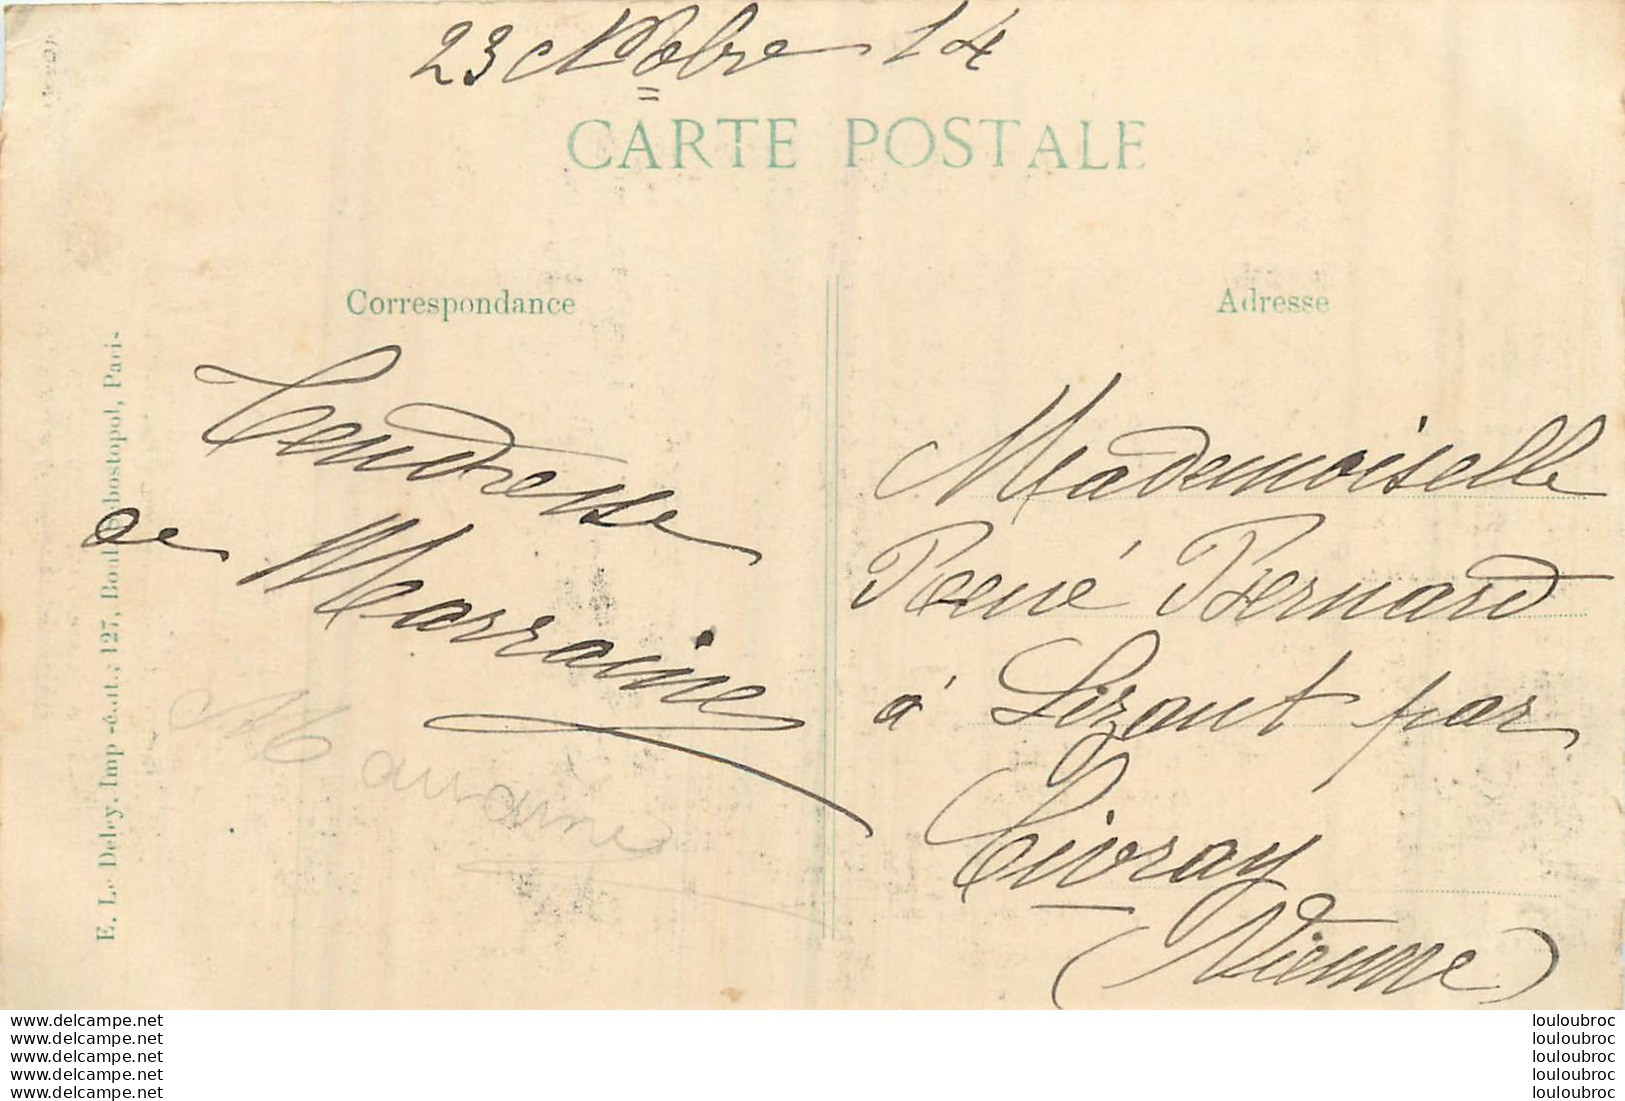 23 Nobre 14
CARTE POSTALE
Correspondance
Adresse
Tendresse
de Marraine
Marraine
Mademoiselle
René Bernard
à Lizant par
Civray
(Vienne)
E. Le Deley, Imp.-édit., 127, Boul. Sébastopol, Paris
www.delcampe.net
www.delcampe.net
www.delcampe.net
www.delcampe.net
www.delcampe.net
louloubroc
louloubroc
louloubroc
louloubroc
louloubroc